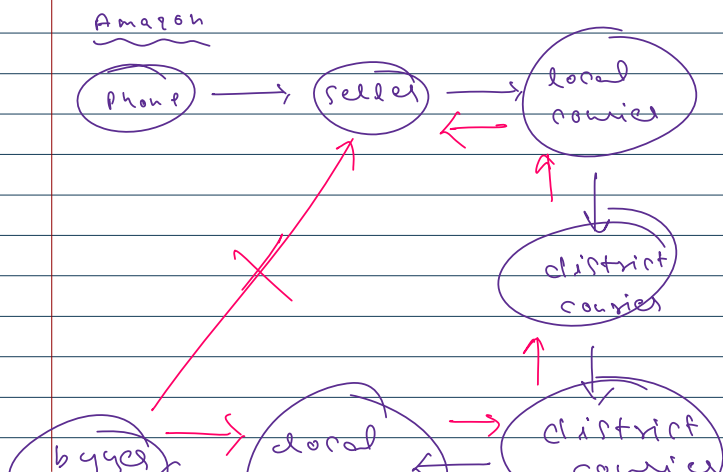 Amazon
Phone
Seller
local
courier
district
courier
buyer
local
district
courier